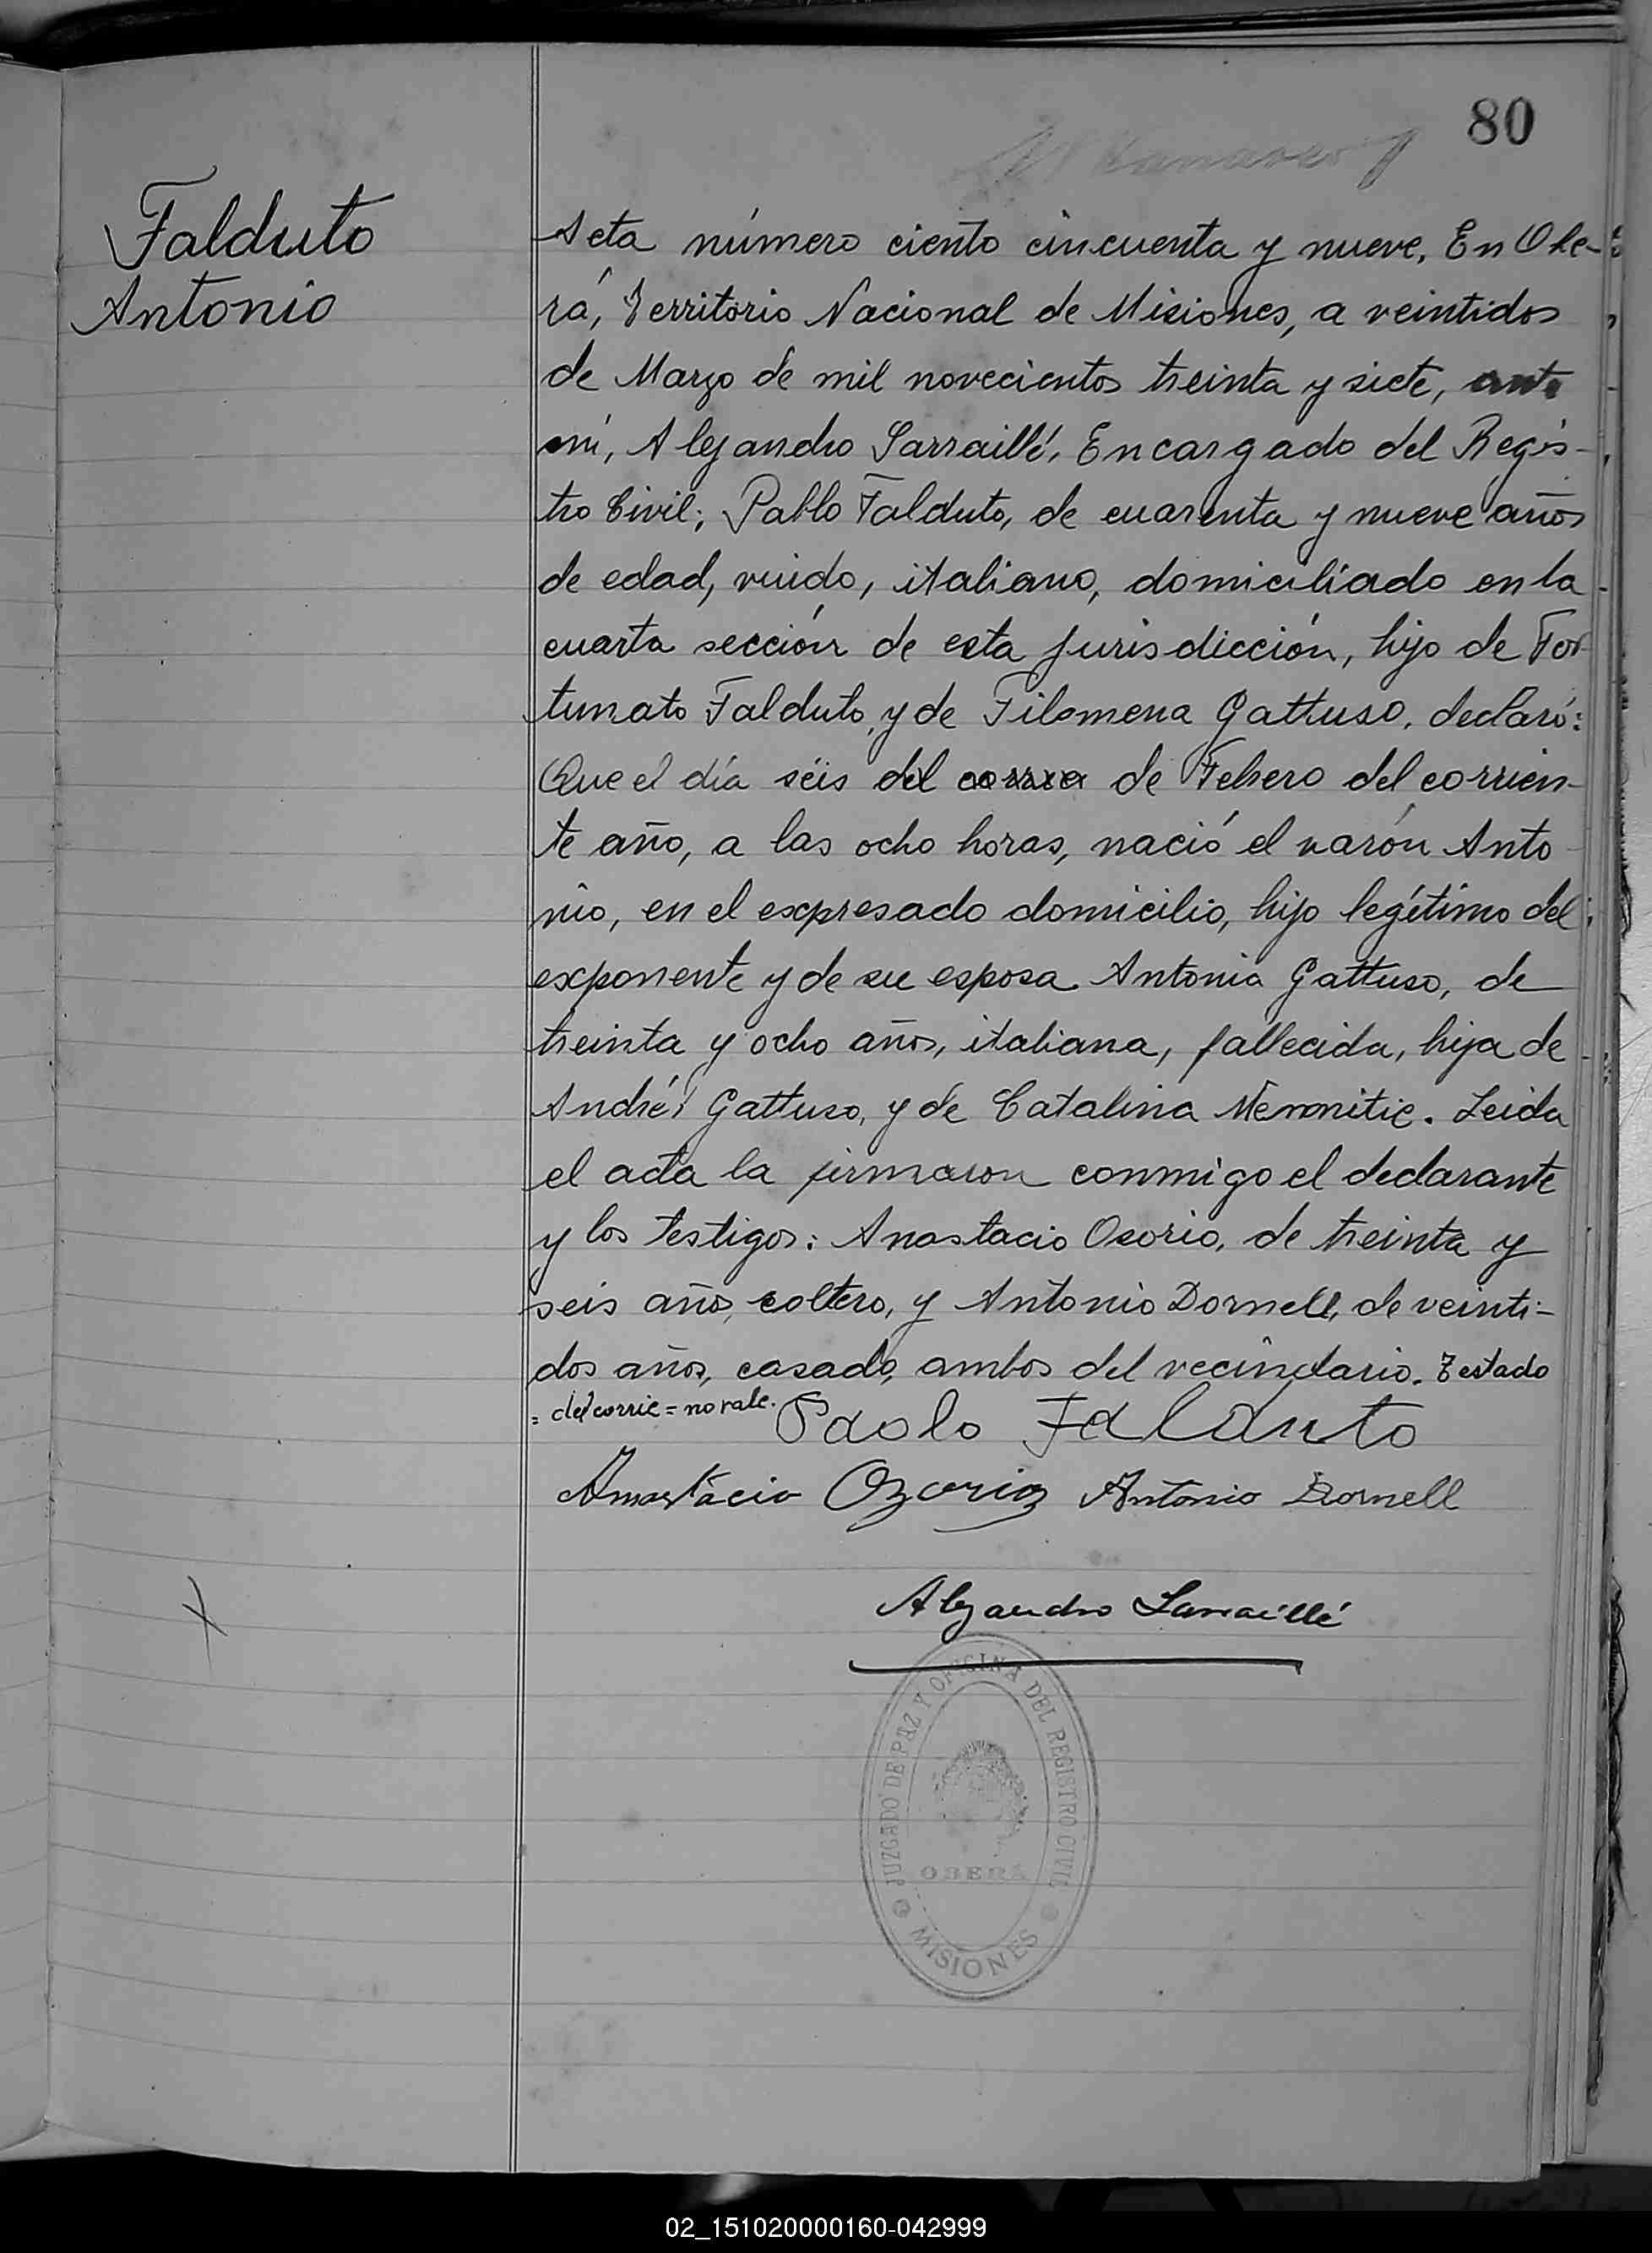 80
Falduto
Antonio
Acta número ciento cincuenta y nueve. En Obe-
rá, Territorio Nacional de Misiones, a veintidos
de Marzo de mil novecientos treinta y siete, ante
mi, Alejandro Sarraillé, Encargado del Regis-
tro Civil; Pablo Falduto, de cuarenta y nueve años
de edad, viudo, italiano, domiciliado en la
cuarta sección de esta jurisdicción, hijo de For
tunato Falduto, y de Filomena Gattuso, declaró:
Que el día séis del corrie de Febrero del corrien-
te año, a las ocho horas, nació el varón Anto
nio, en el expresado domicilio, hijo legítimo del
exponente y de su esposa Antonia Gattuso, de
treinta y ocho años, italiana, fallecida, hija de
Andrés Gattuso, y de Catalina . Leida
el acta la firmaron conmigo el declarante
y los testigos: Anastacio Osorio, de treinta y
seis años, soltero, y Antonio Dornell, de veinti-
dos años, casado, ambos del vecindario. Testado
= del corrie = no vale.
Paolo Falduto
Anastácio Ozorio Antonio Dornell
Alejandro Sarraillé
JUZGADO DE PAZ Y OFICINA DEL REGISTRO CIVIL
OBERÁ
MISIONES
02_151020000160-042999